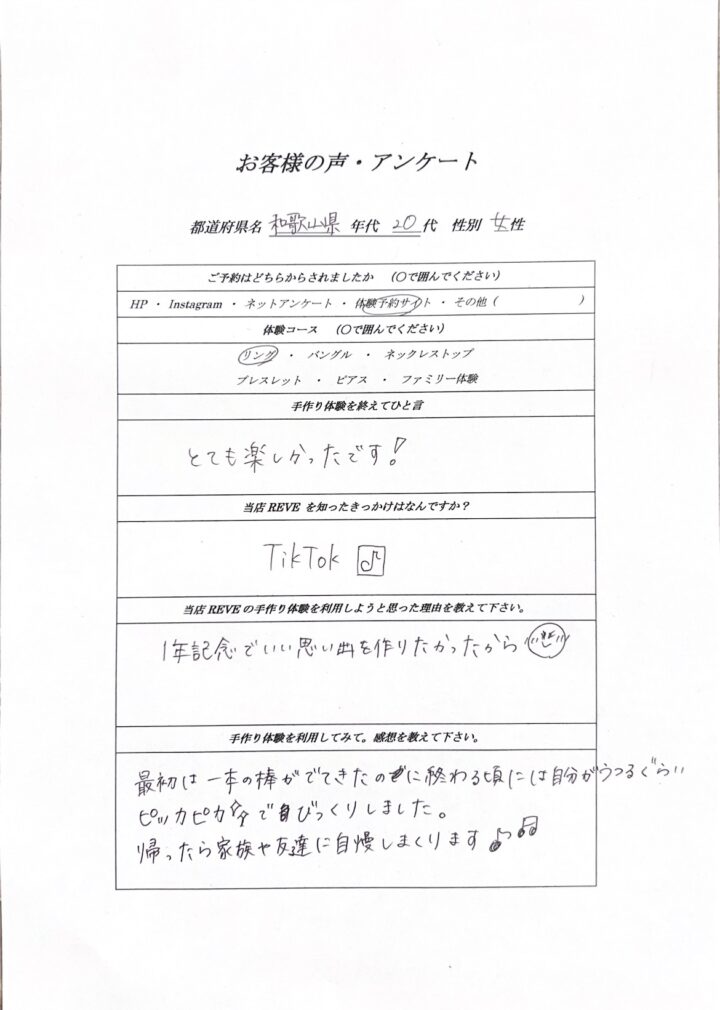 お客様の声・アンケート
都道府県名 和歌山県 年代 20代 性別 女性
ご予約はどちらからされましたか （〇で囲んでください）
HP ・ Instagram ・ ネットアンケート ・ 体験予約サイト ・ その他（ ）
体験コース （〇で囲んでください）
リング ・ バングル ・ ネックレストップ
ブレスレット ・ ピアス ・ ファミリー体験
手作り体験を終えてひと言
とても楽しかったです！
当店 REVE を知ったきっかけはなんですか？
TikTok ♪
当店 REVE の手作り体験を利用しようと思った理由を教えて下さい。
1年記念でいい思い出を作りたかったから
手作り体験を利用してみて。感想を教えて下さい。
最初は一本の棒がでてきたのに終わる頃には自分がうつるぐらい
ピッカピカ☆☆でびっくりしました。
帰ったら家族や友達に自慢しまくります♪♫